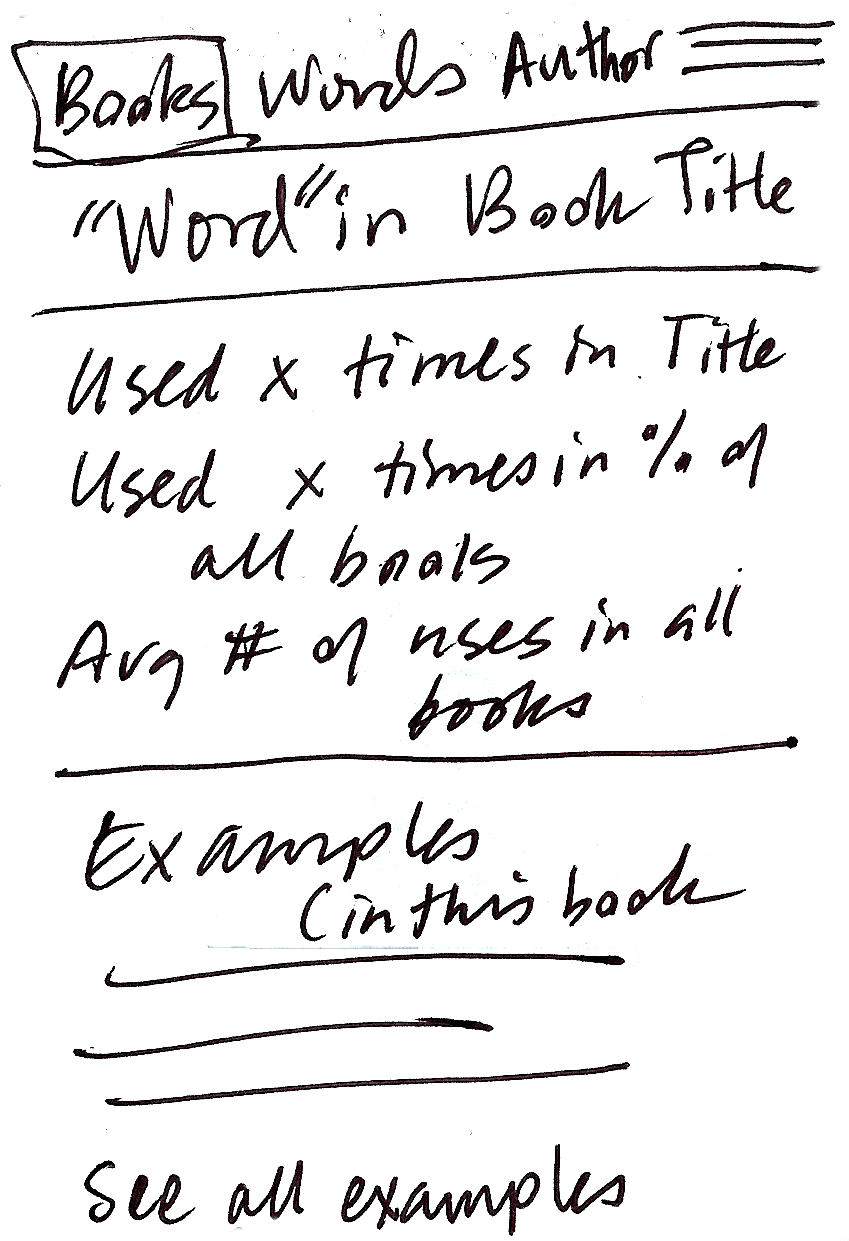 Books Words Author
"Word" in Book Title
Used x times in Title
Used x times in % of
all books
Avg # of uses in all
books
Examples
(in this book
See all examples